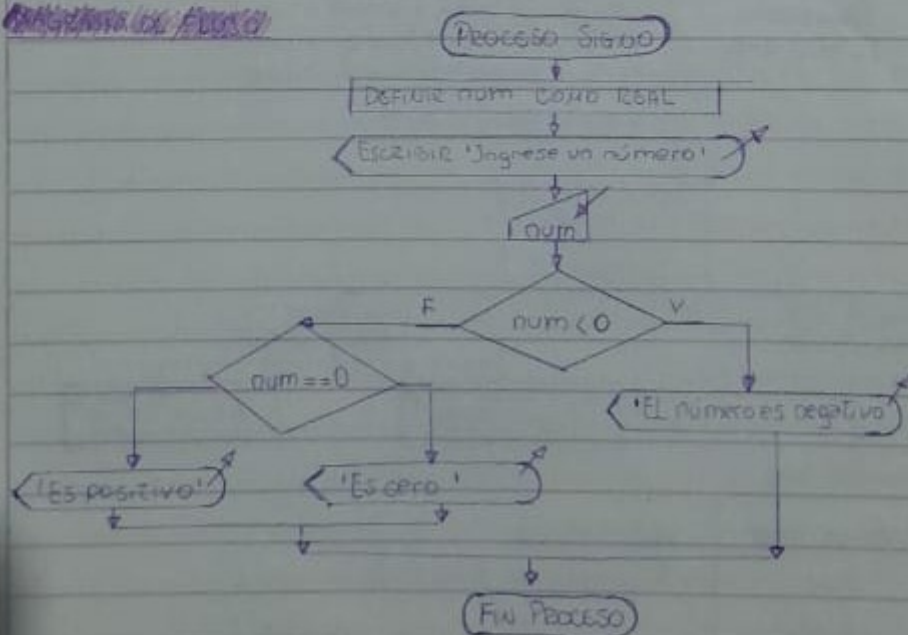 DIAGRAMA DE FLUJO
PROCESO SIGNO
DEFINIR num COMO REAL
ESCRIBIR 'Ingrese un número'
num
F
V
num < 0
num == 0
'EL número es negativo'
'Es positivo'
'Es cero'
FIN PROCESO